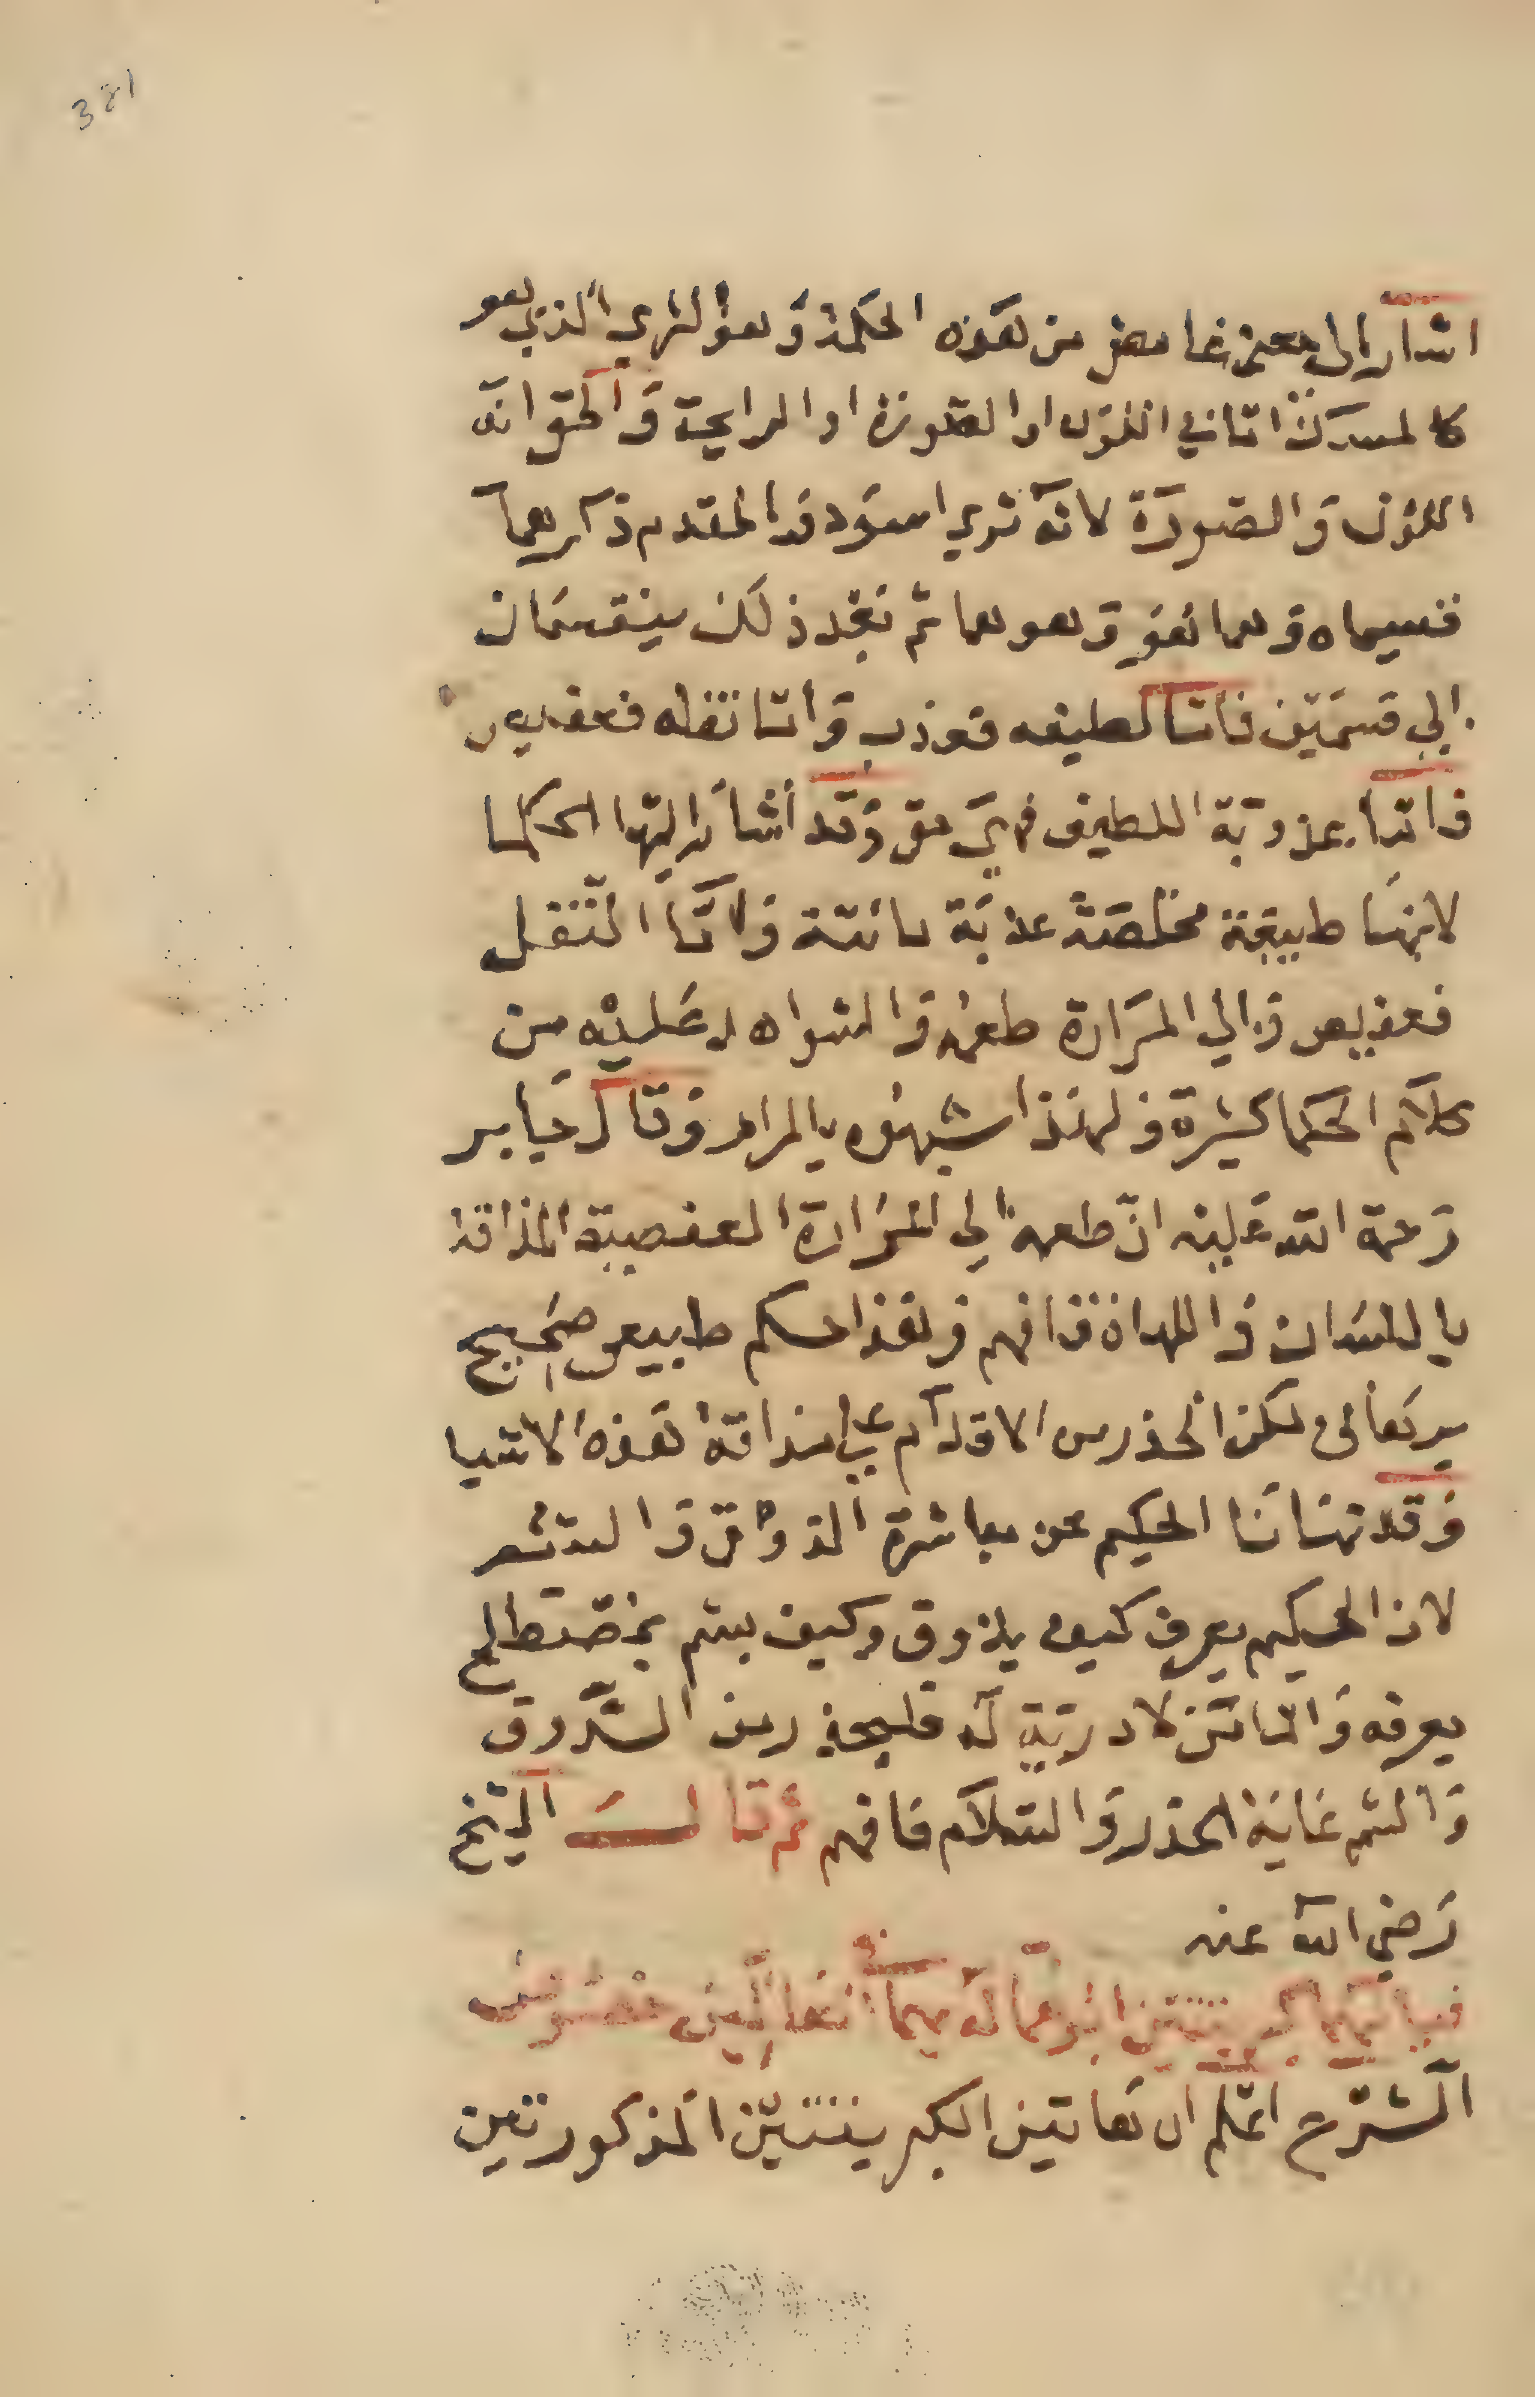 381
اشار الى معنى غامض من هذه الحكمة وهو الشي الذي هو
كالمسك اما في اللون او الصورة او الرايحة والحق انه
اللون والصورة لانه شي اسود والمقدم ذكرهما
قسيماه وهما هو وهو هما ثم بعد ذلك ينقسمان
الي قسمين فاما لطيفه فعذب واما ثفله فعفيص
فاما عذوبة اللطيف فهي حق وقد أشار اليها الحكما
لانها طبيعة مخلصة عذبة مائية واما الثفل
فعفيص والي المرارة طعمه والشواهد عليه من
كلام الحكما كثيرة ولهذا شبهوه بالمرار وقال جابر
رحمة الله عليه ان طعمه الي المرارة العفصية المذاقة
باللسان واللهاة فافهم وهذا حكم طبيعي صحيح
برهاني لكن الحذر من الاقدام على مذاقة هذه الاشيا
وقد نهانا الحكيم عن مباشرة الذوق والشم
لان الحكيم يعرف كيف يذوق وكيف يشم
يعرفه واما من لا دربة له فليحذر من الذوق
والشم غاية الحذر والسلام فافهم ثم قال الشيخ
رضي الله عنه
الشرح اعلم ان هاتين الكبريتتين المذكورتين